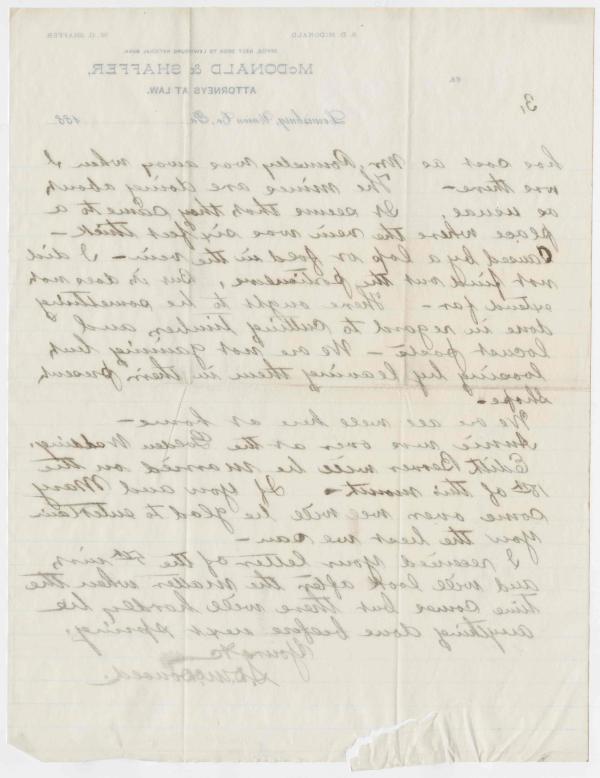 S. D. McDONALD W. O. SHAFFER
OFFICE, NEXT DOOR TO LEWISBURG NATIONAL BANK.
McDONALD & SHAFFER,
ATTORNEYS AT LAW.
Lewisburg, Union Co., Pa. 188
3,
has cost as Mr, was away when I
was there—
The mines are doing about
as usual, It seems that they came to a
place where the vein was six feet thick—
Caused by a lap or fold in the vein— I did
not find out the particulars, but it does not
extend far— There ought to be something
done in regard to cutting timber and
locust posts— We are not gaining but
loosing by leaving them in their present
shape—
We are all well here at home—
Annie was over at the Golden Wedding,
Edith will be married on the
18th of this month— If you and Mary
come over we will be glad to entertain
you the best we can—
I received your letter of the 4th inst,
and will look after the matter when the
time comes but there will hardly be
anything done before next spring,
Yours &c
S D McDonald.